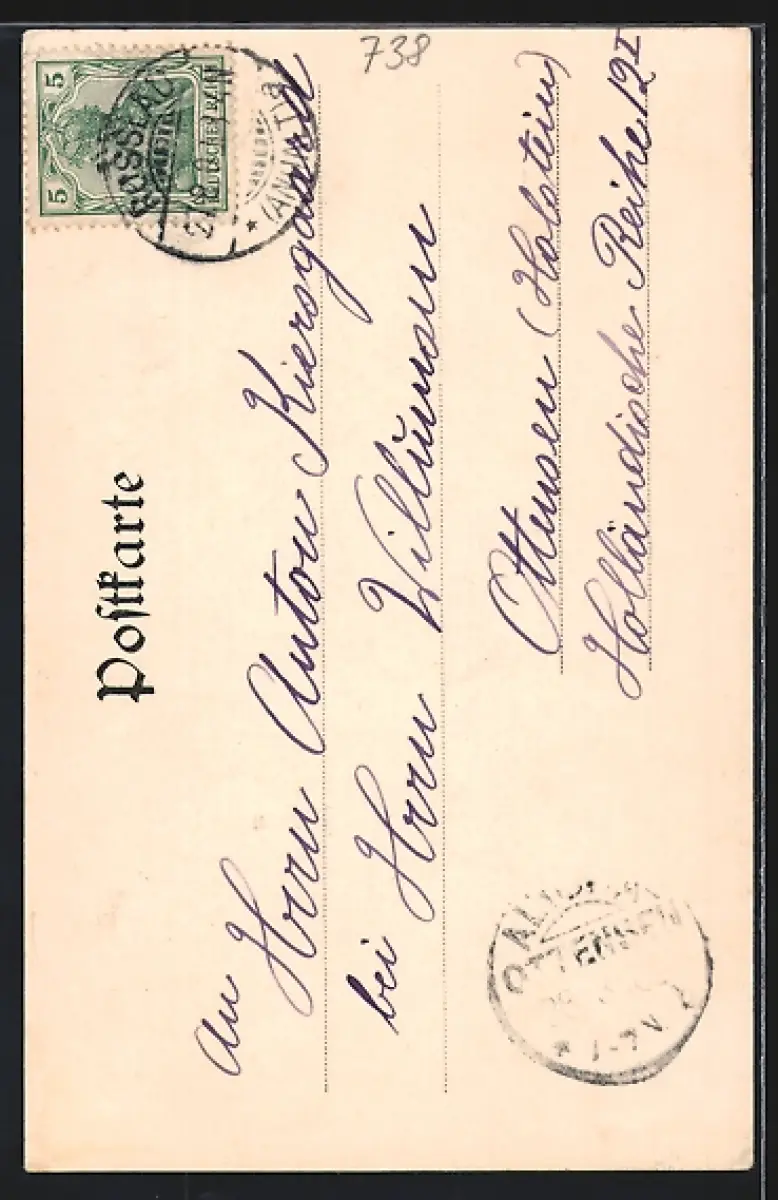 738
5
5
DEUTSCHES REICH
ROSSLAU
(ANHALT)
Postkarte
An Herrn Anton Kiersgaard
bei Herrn Willumsen
Ottensen (Holstein)
Holländische Reihe 12 I
OTTENSEN
* 1-7V